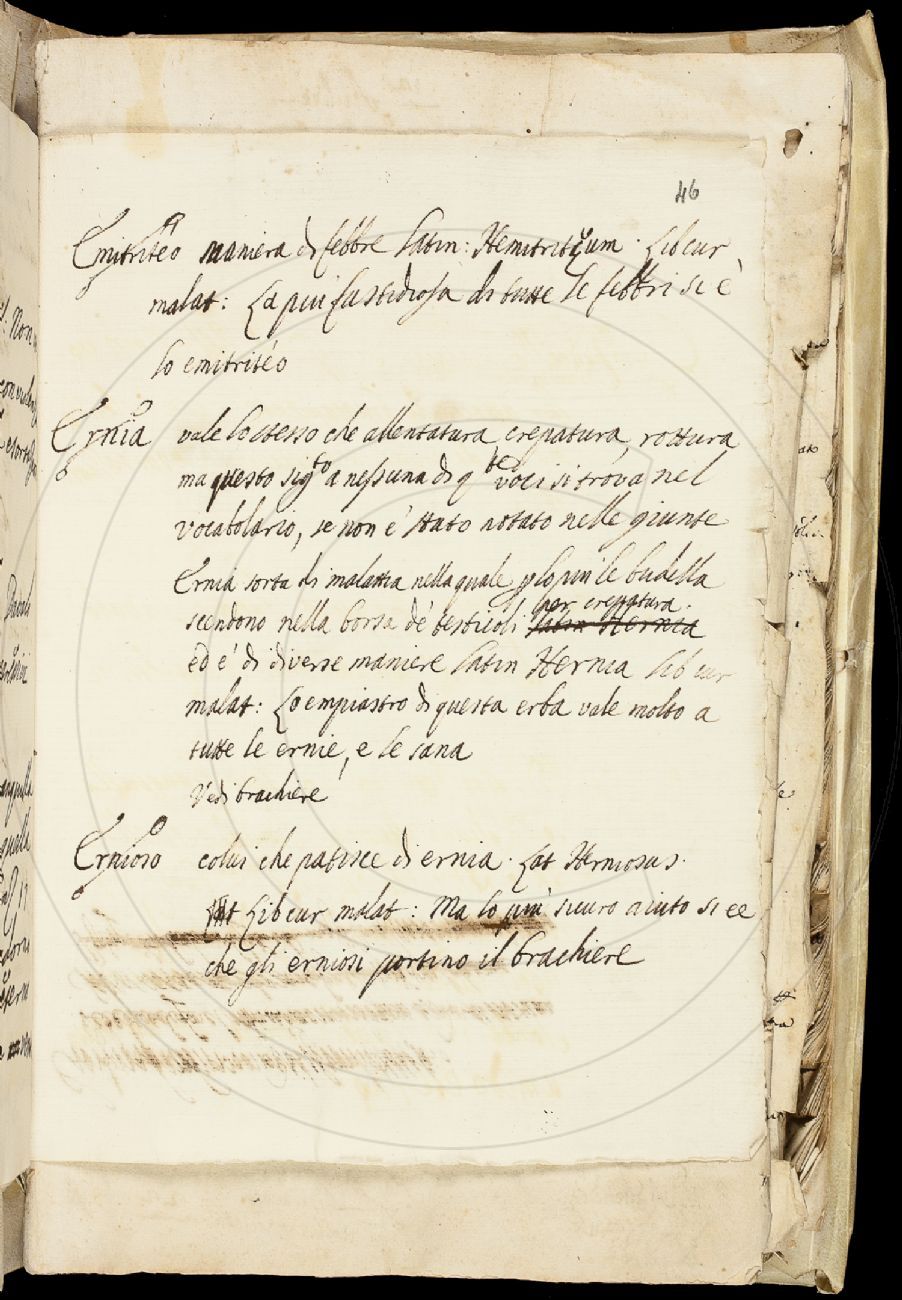 46
Emitritéo maniera di febbre Latin: Hemitritęum. Lib cur
malat: La piu fastidiosa di tutte le febbri si è
lo emitritéo
Ernia vale lo stesso che allentatura crepatura, rottura
ma questo sig.to a nessuna di q.te voci si trova nel
vocabolario, se non è stato notato nelle giunte
Ernia sorta di malattia nella quale p lo piu le budella
scendono nella borsa de' testicoli per crepatura.
ed è di diverse maniere Latin Hernia Lib cur
malat: Lo empiastro di questa erba vale molto a
tutte le ernie, e le sana
Vedi brachiere
Ernioso colui che patisce di ernia. Lat Herniosus.
Lib cur malat: Ma lo più sicuro aiuto si ee
che gli erniosi portino il brachiere